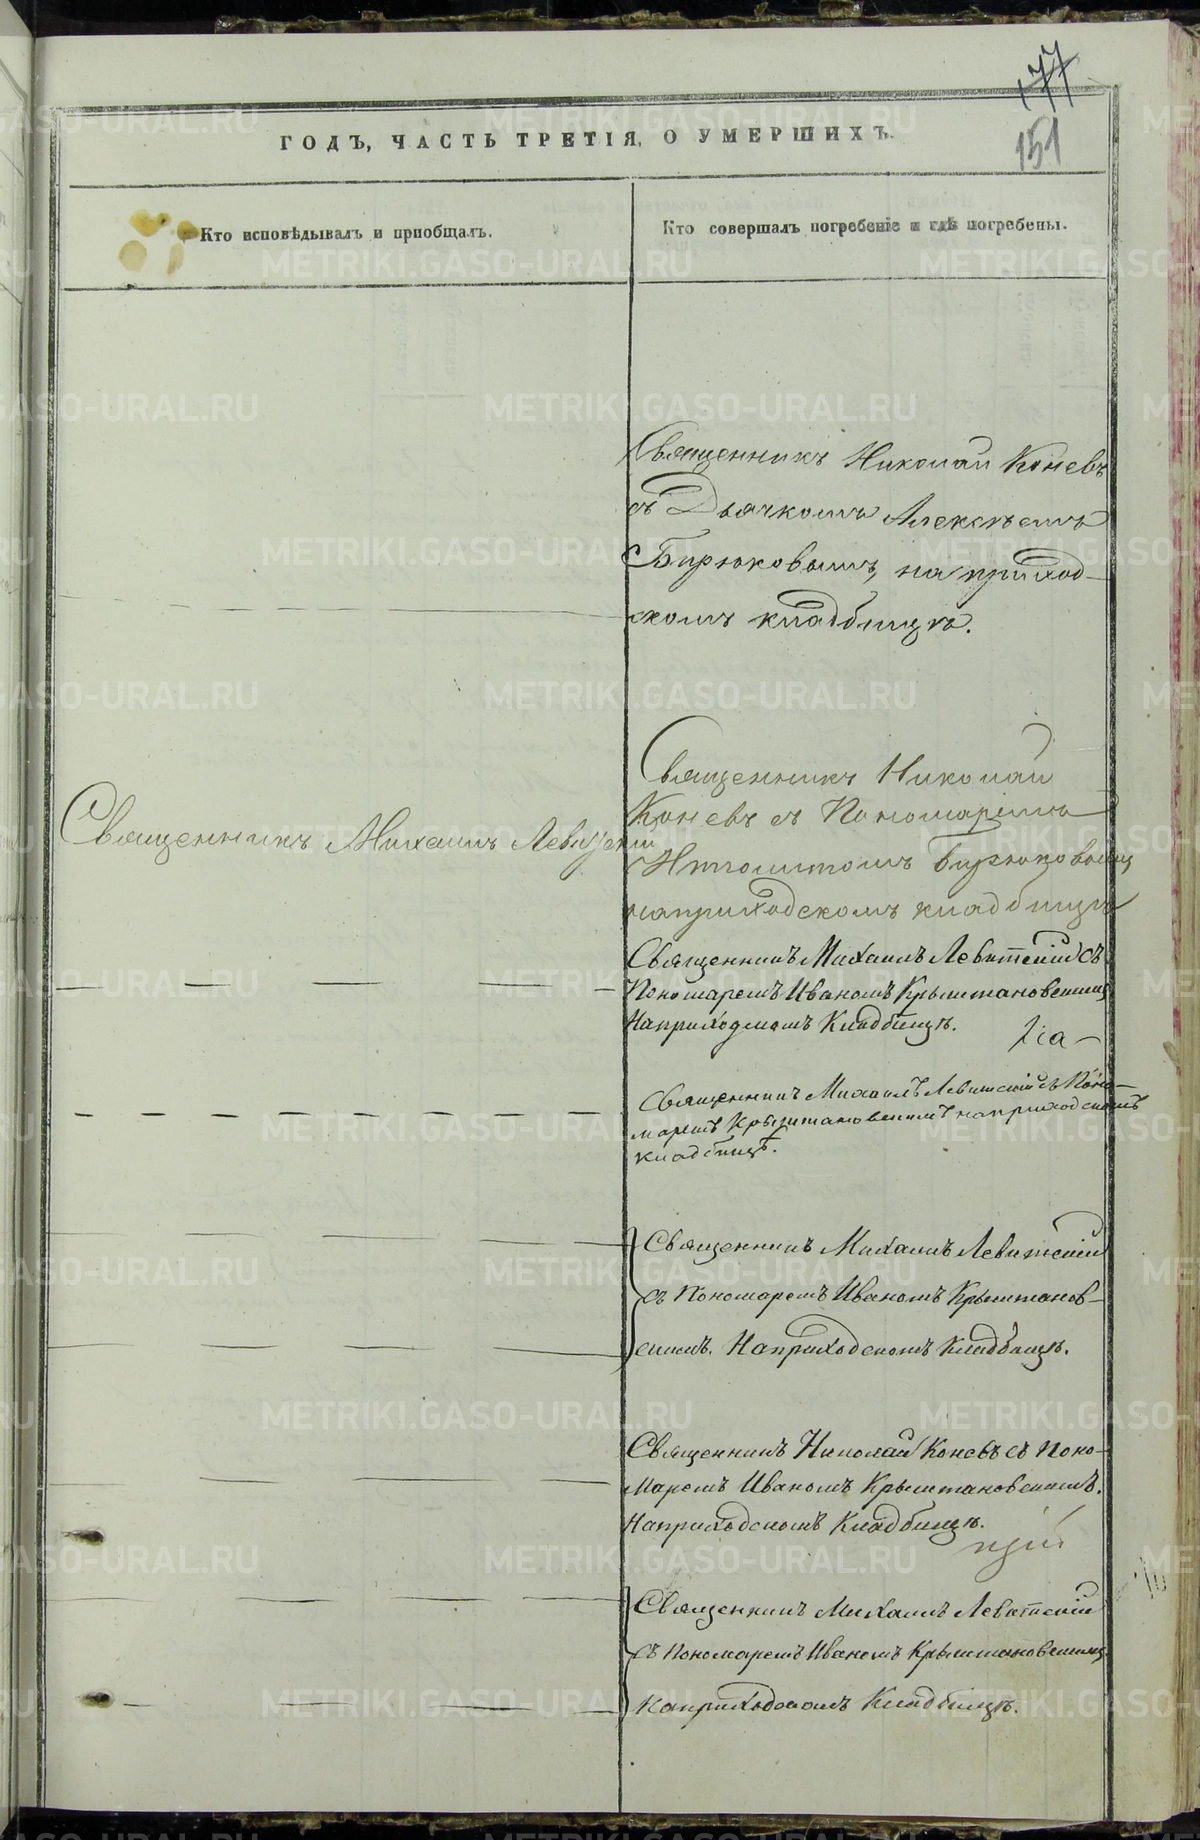 177
151
ГОДЪ, ЧАСТЬ ТРЕТІЯ, О УМЕРШИХЪ.
Кто исповѣдывалъ и приобщалъ.
Кто совершалъ погребеніе и гдѣ погребены.
Священникъ Николай Коневъ
съ Дьячкомъ Алексѣемъ
Бирюковымъ, на приход-
скомъ кладбищѣ.
Священникъ Михаилъ Левитскій
Священникъ Николай
Коневъ съ Пономаремъ
Бирюковымъ
на приходскомъ кладбищѣ
Священникъ Михаилъ Левитскій съ
Пономаремъ Иваномъ Крыштановскимъ
На приходскомъ Кладбищѣ.
Священникъ Михаилъ Левитскій съ Поно-
маремъ Крыштановскимъ на приходскомъ
кладбищѣ.
Священникъ Михаилъ Левитскій
съ Пономаремъ Иваномъ Крыштанов-
скимъ. На приходскомъ Кладбищѣ.
Священникъ Николай Коневъ съ Поно-
маремъ Иваномъ Крыштановскимъ.
На приходскомъ Кладбищѣ.
Священникъ Михаилъ Левитскій
съ Пономаремъ Иваномъ Крыштановскимъ
На приходскомъ Кладбищѣ.
METRIKI.GASO-URAL.RU